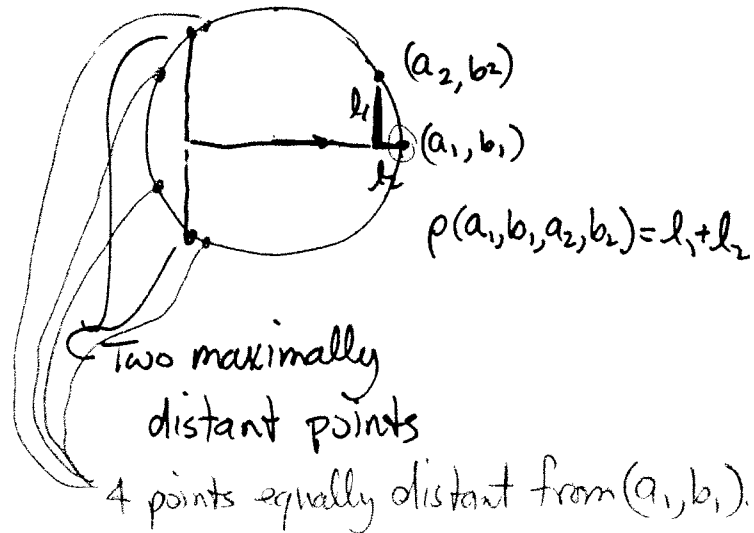 (a₂, b₂)
l₁
(a₁, b₁)
l₂
ρ(a₁, b₁, a₂, b₂) = l₁ + l₂
Two maximally
distant points
4 points equally distant from (a₁, b₁).